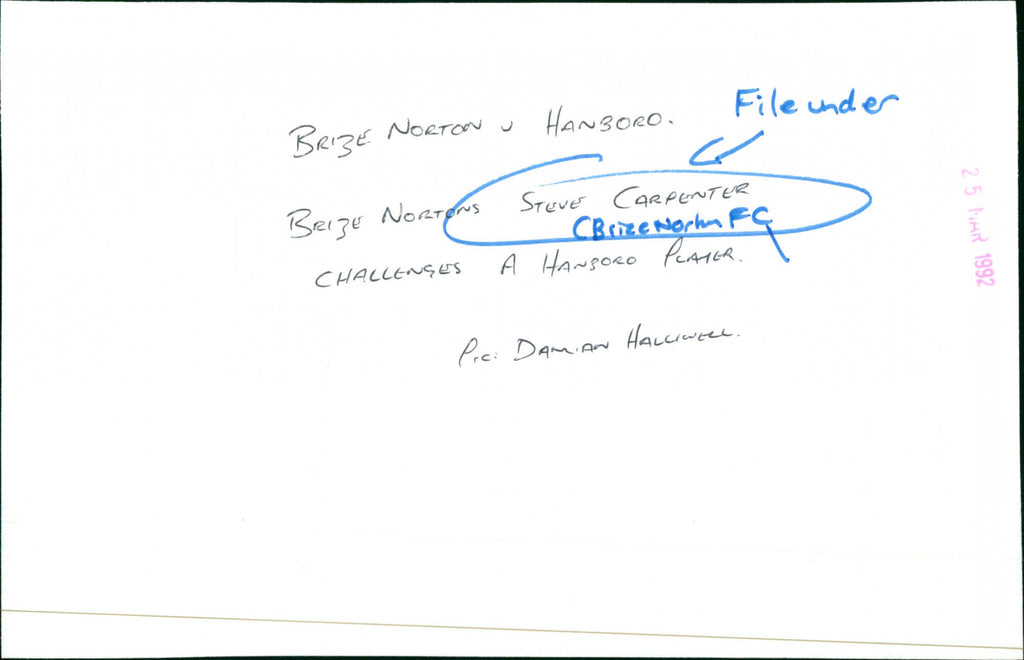 File under
BRIZE NORTON v HANBORO.
BRIZE NORTONS STEVE CARPENTER
(Brize Norton FC)
CHALLENGES A HANBORO PLAYER.
Pic: DAMIAN HALLIWELL.
25 MAR 1992